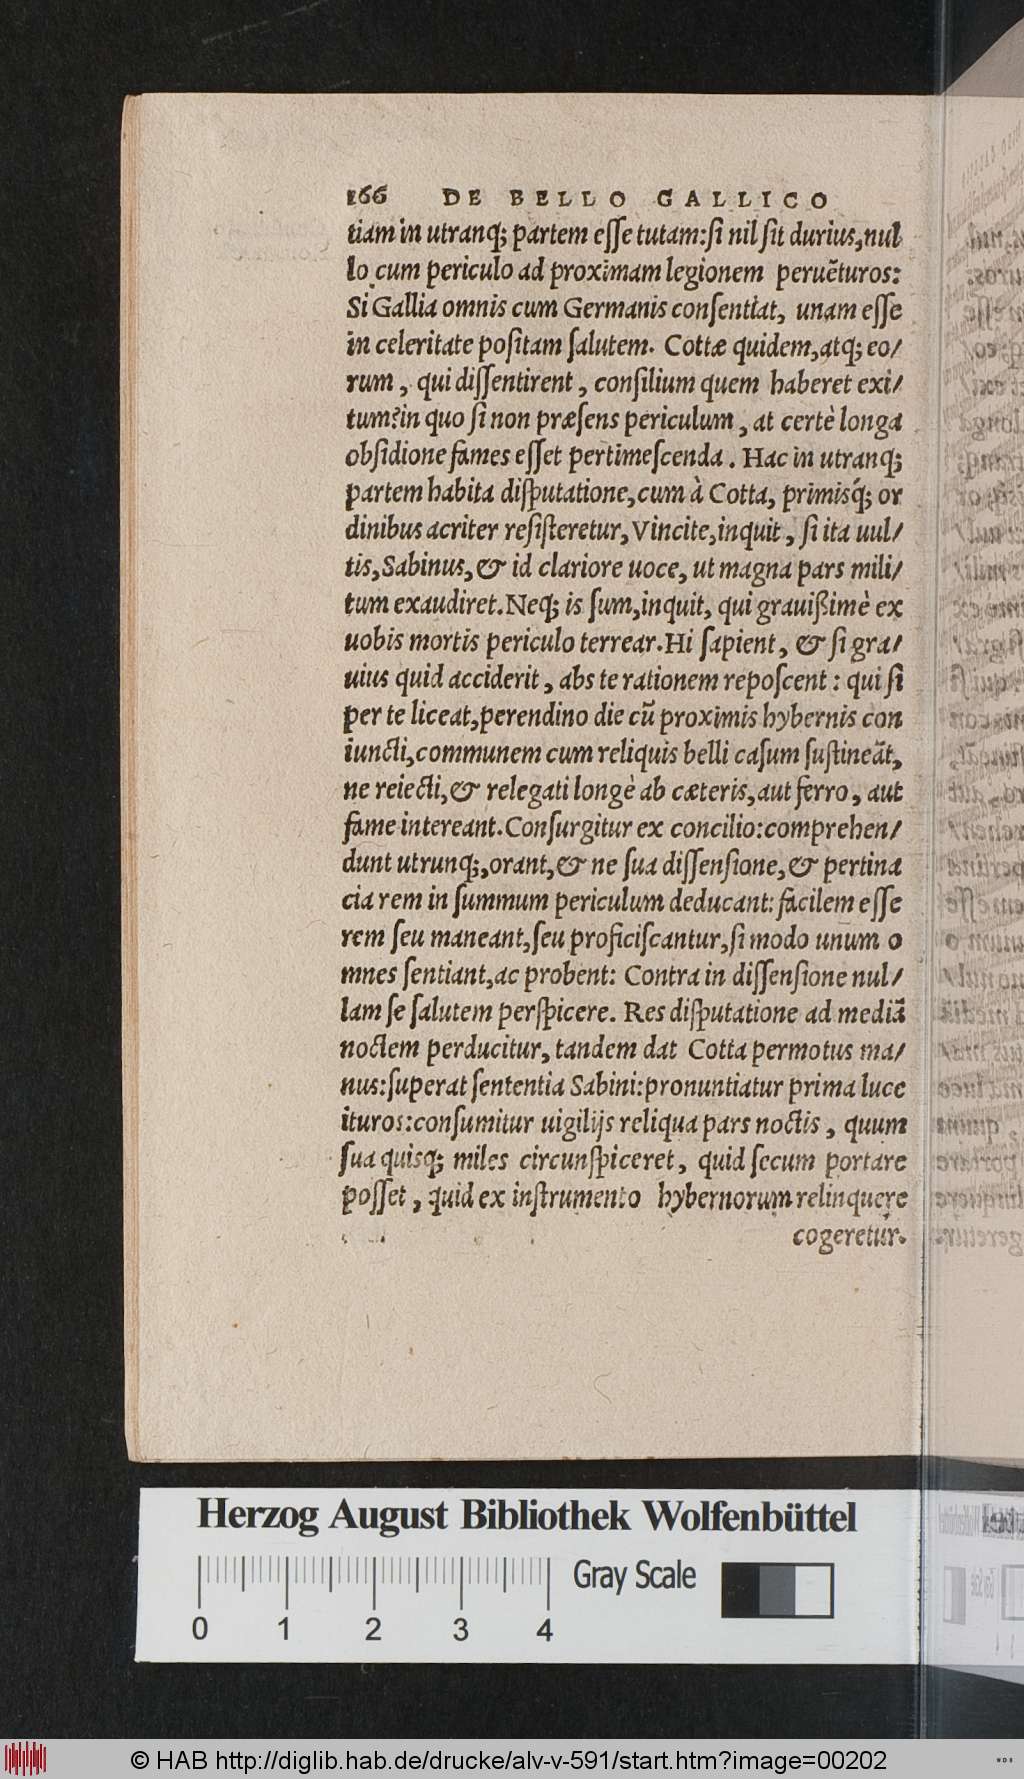 166 DE BELLO GALLICO
tiam in utranq; partem eſſe tutam:ſi nil ſit durius,nul
lo cum periculo ad proximam legionem peruẽturos:
Si Gallia omnis cum Germanis conſentiat, unam eſſe
in celeritate poſitam ſalutem. Cottæ quidem,atq; eo/
rum, qui diſſentirent, conſilium quem haberet exi/
tum?in quo ſi non præſens periculum, at certè longa
obſidione fames eſſet pertimeſcenda. Hac in utranq;
partem habita diſputatione,cum à Cotta, primisq́; or
dinibus acriter reſiſteretur,Vincite,inquit, ſi ita uul/
tis,Sabinus,& id clariore uoce, ut magna pars mili/
tum exaudiret.Neq; is ſum,inquit, qui grauißimè ex
uobis mortis periculo terrear.Hi ſapient, & ſi gra/
uius quid acciderit, abs te rationem repoſcent: qui ſi
per te liceat,perendino die cũ proximis hybernis con
iuncti,communem cum reliquis belli caſum ſuſtineãt,
ne reiecti,& relegati longè ab cæteris,aut ferro, aut
fame intereant.Conſurgitur ex concilio:comprehen/
dunt utrunq;,orant,& ne ſua diſſenſione,& pertina
cia rem in ſummum periculum deducant: facilem eſſe
rem ſeu maneant,ſeu proficiſcantur,ſi modo unum o
mnes ſentiant,ac probent: Contra in diſſenſione nul/
lam ſe ſalutem perſpicere. Res diſputatione ad mediã
noctem perducitur, tandem dat Cotta permotus ma/
nus:ſuperat ſententia Sabini:pronuntiatur prima luce
ituros:conſumitur uigilijs reliqua pars noctis, quum
ſua quisq; miles circunſpiceret, quid ſecum portare
poſſet, quid ex inſtrumento hybernorum relinquere
cogeretur.
Herzog August Bibliothek Wolfenbüttel
Gray Scale
0 1 2 3 4
© HAB http://diglib.hab.de/drucke/alv-v-591/start.htm?image=00202